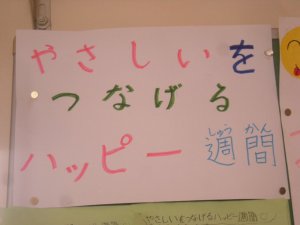 やさしいを
つなげる
ハッピー週間
しゅう かん
やさしいをつなげるハッピー週間